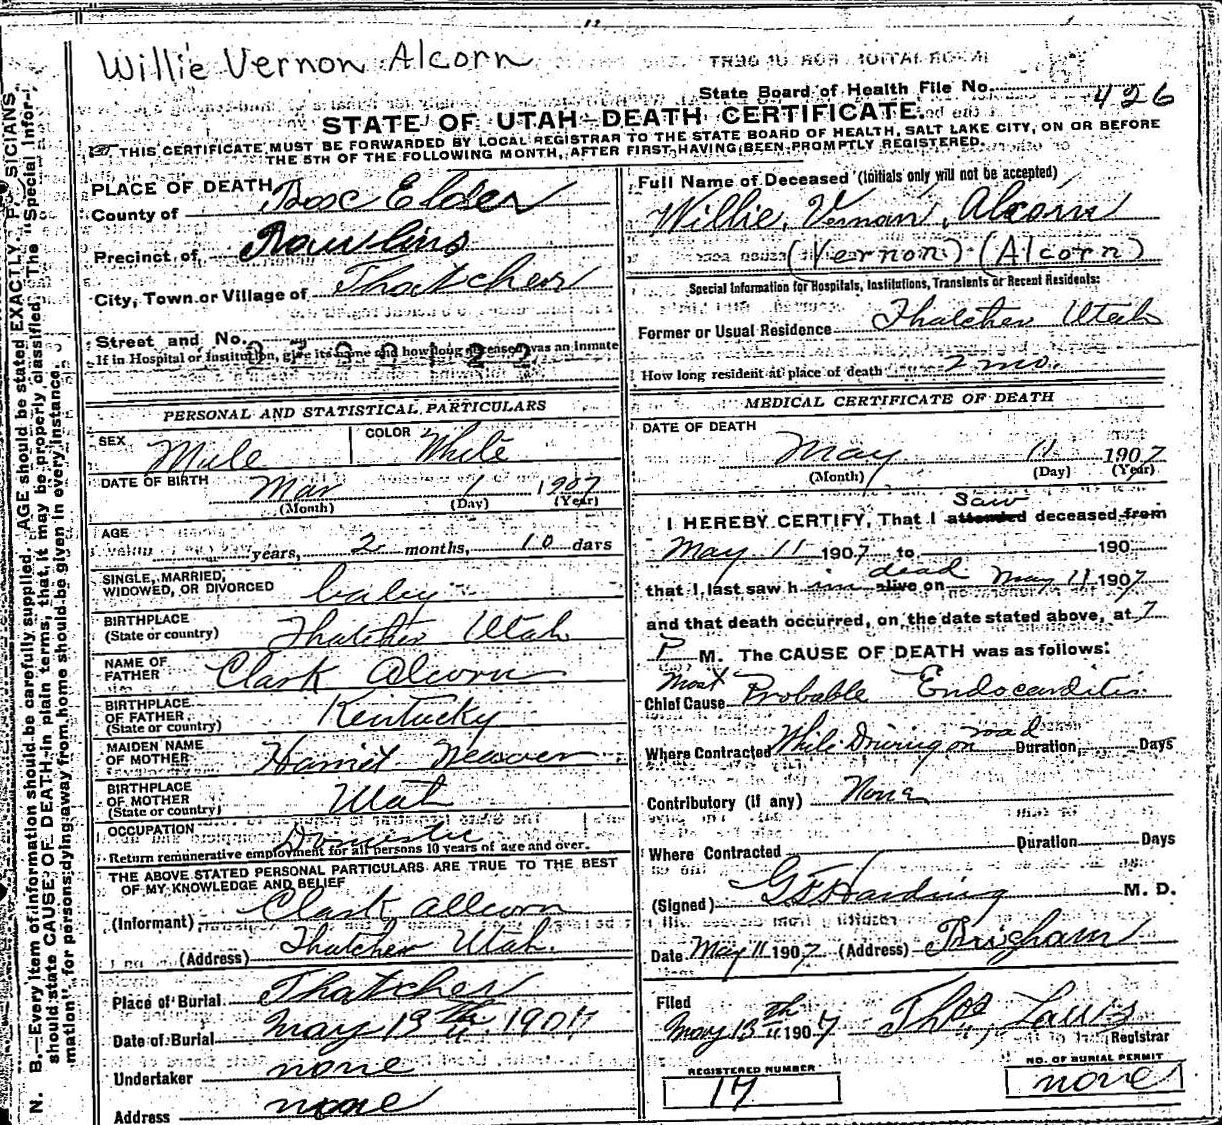 Willie Vernon Alcorn
State Board of Health File No. 426
STATE OF UTAH—DEATH CERTIFICATE.
THIS CERTIFICATE MUST BE FORWARDED BY LOCAL REGISTRAR TO THE STATE BOARD OF HEALTH, SALT LAKE CITY, ON OR BEFORE
THE 5TH OF THE FOLLOWING MONTH, AFTER FIRST HAVING BEEN PROMPTLY REGISTERED.
PLACE OF DEATH
County of Box Elder
Precinct of Rawlins
City, Town or Village of Thatcher
Street and No.
If in Hospital or Institution, give its name and how long deceased was an inmate
PERSONAL AND STATISTICAL PARTICULARS
SEX Male COLOR White
DATE OF BIRTH Mar 1 1907
(Month) (Day) (Year)
AGE
years, 2 months, 10 days
SINGLE, MARRIED,
WIDOWED, OR DIVORCED baby
BIRTHPLACE
(State or country) Thatcher Utah
NAME OF
FATHER Clark Alcorn
BIRTHPLACE
OF FATHER
(State or country) Kentucky
MAIDEN NAME
OF MOTHER Harriet
BIRTHPLACE
OF MOTHER
(State or country) Utah
OCCUPATION Domestic
Return remunerative employment for all persons 10 years of age and over.
THE ABOVE STATED PERSONAL PARTICULARS ARE TRUE TO THE BEST
OF MY KNOWLEDGE AND BELIEF
(Informant) Clark Allcorn
(Address) Thatcher Utah.
Place of Burial Thatcher
Date of Burial May 13th 1907
Undertaker none
Address none
Full Name of Deceased (Initials only will not be accepted)
Willie, Vernan, Alcorn
(Vernon) (Alcorn)
Special Information for Hospitals, Institutions, Transients or Recent Residents:
Former or Usual Residence Thatcher Utah
How long resident at place of death 2 mo.
MEDICAL CERTIFICATE OF DEATH
DATE OF DEATH
May 11 1907
(Month) (Day) (Year)
saw
I HEREBY CERTIFY, That I attended deceased from
May 11 1907 to 190
dead
that I last saw him alive on May 11 1907
and that death occurred, on the date stated above, at 7
P M. The CAUSE OF DEATH was as follows:
Chief Cause Most Probable Endocarditis
Where Contracted While Driving on road Duration Days
Contributory (if any) None
Where Contracted Duration Days
(Signed) G F Harding M. D.
Date May 11 1907 (Address) Brigham
Filed
May 13th 1907 Thos, Lewis
Registrar
REGISTERED NUMBER
17
NO. OF BURIAL PERMIT
none
N. B.—Every item of information should be carefully supplied. AGE should be stated EXACTLY. PHYSICIANS
should state CAUSE OF DEATH in plain terms, that it may be properly classified. The "Special Infor-
mation" for persons dying away from home should be given in every instance.